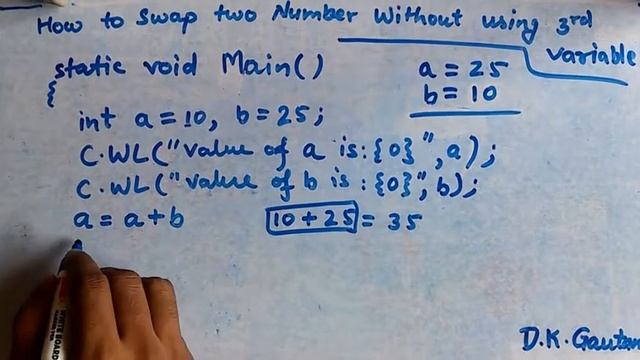 How to Swap two Number Without using 3rd
variable
static void Main()
{
int a = 10, b = 25;
C.WL("value of a is:{0}", a);
C.WL("value of b is :{0}", b);
a = a + b
10 + 25 = 35
a = 25
b = 10
D.K.Gautam